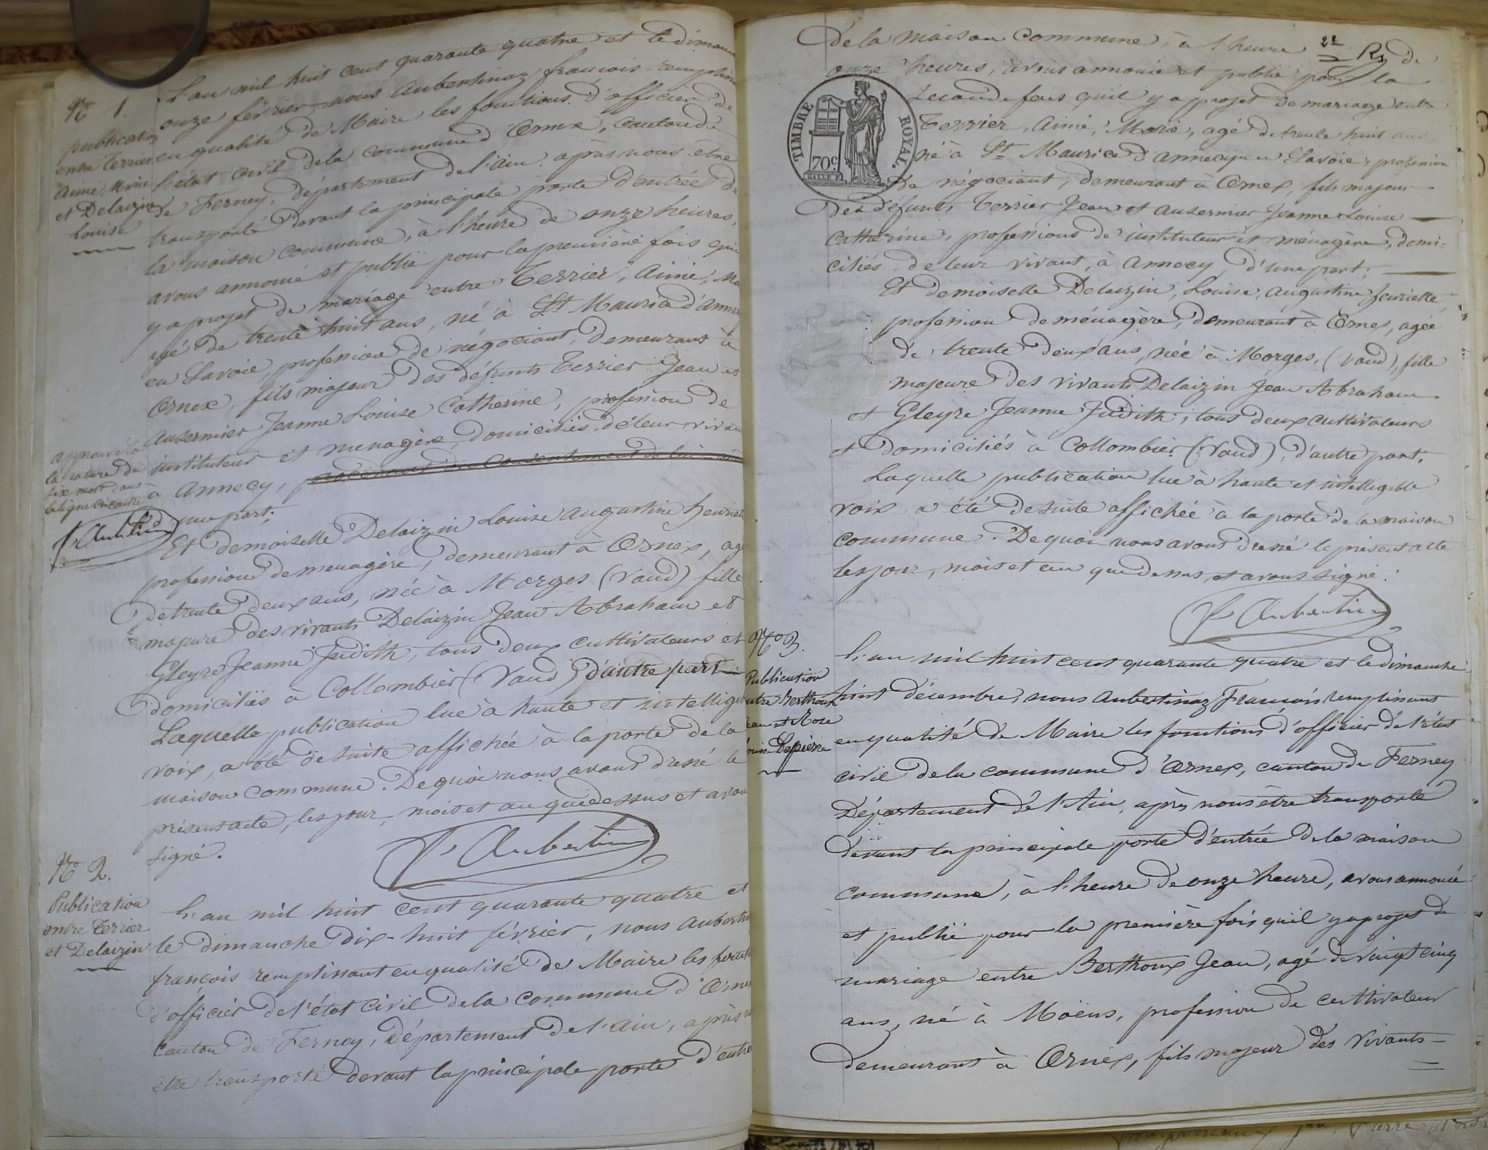 N° 1.
publication
entre Terrier
Aimé, Moré
et Delaizin
Louise
L'an mil huit cent quarante quatre et le dimanche
onze février nous Aubertinaz françois remplissant
en qualité de Maire les fonctions d'officier de
l'état civil de la commune d'Ornex, canton de
de Ferney, département de l'ain, après nous être
transporté devant la principale porte d'entrée de
la maison commune, à l'heure de onze heures,
avons annoncé et publié pour la première fois qu'il
y a projet de mariage entre Terrier, Aimé, Mo
agé de trente huit ans, né à St Maurice d'annecy
en Savoie, profession de négociant, demeurant à
Ornex, fils majeur des défunts Terrier Jean et
Ausermier Jeanne Louise Catherine, profession de
instituteur et ménagère, domiciliés de leur vivant
à Annecy,
que part;
approuvé
la rature de
six mots dans
la ligne
F. Aubertin
Et demoiselle Delaizin Louise Augustine henriette
profession de menagère, demeurant à Ornex, agée
de trente deux ans, née à Morges (Vaud) fille
majeure des vivants Delaizin Jean Abraham et
Gleyre Jeanne Judith, tous deux cultivateurs et
domiciliés à Collombier (Vaud) d'autre part
Laquelle publication lue à haute et intelligible
voix, a été de suite affichée à la porte de la
maison commune. De quoi nous avons dressé le
présent acte, les jour, mois et an que dessus et avons
signé.
F. Aubertin
N° 2.
Publication
entre Terrier
et Delaizin
L'an mil huit cent quarante quatre et
le dimanche dix-huit février, nous Aubertin
françois remplissant en qualité de Maire les fonctions
d'officier de l'état civil de la commune d'Ornex
canton de Ferney, Département de l'Ain, après nous
être transporté devant la principale porte d'entrée
22
de la maison commune, à l'heure de
onze heures, avons annoncé et publié pour la
seconde fois qu'il y a projet de mariage entre
Terrier, Aimé, Moré, agé de trente huit ans
né à St Maurice d'annecy en Savoie, profession
de négociant, demeurant à Ornex, fils majeur
TIMBRE ROYAL
70c
des défunts Terrier Jean et Ausermier Jeanne Louise
Catherine, professions de instituteur et ménagère, domi-
ciliés de leur vivant, à Annecy, d'une part;
Et demoiselle Delaizin, Louise, Augustine henriette
profession de ménagère, demeurant à Ornex, agée
de trente deux ans, née à Morges, (Vaud), fille
majeure des vivants Delaizin Jean Abraham
et Gleyre Jeanne Judith, tous deux cultivateurs
et domiciliés à Collombier (Vaud), d'autre part.
Laquelle publication lue à haute et intelligible
voix a été de suite affichée à la porte de la maison
commune. De quoi nous avons dressé le présent acte
les jour, mois et an que dessus, et avons signé.
F. Aubertin
N° 3.
Publication
entre Berthoux
Jean et Rose
Lapierre
L'an mil huit cent quarante quatre et le dimanche
huit décembre, nous Aubertinaz françois, remplissant
en qualité de Maire les fonctions d'officier de l'état
civil de la commune d'Ornex, canton de Ferney
Département de l'Ain, après nous être transporté
devant la principale porte d'entrée de la maison
commune, à l'heure de onze heure, avons annoncé
et publié pour la première fois qu'il y a projet de
mariage entre Berthoux Jean, agé de vingt cinq
ans, né à Moëns, profession de cultivateur
demeurant à Ornex, fils majeur des vivants